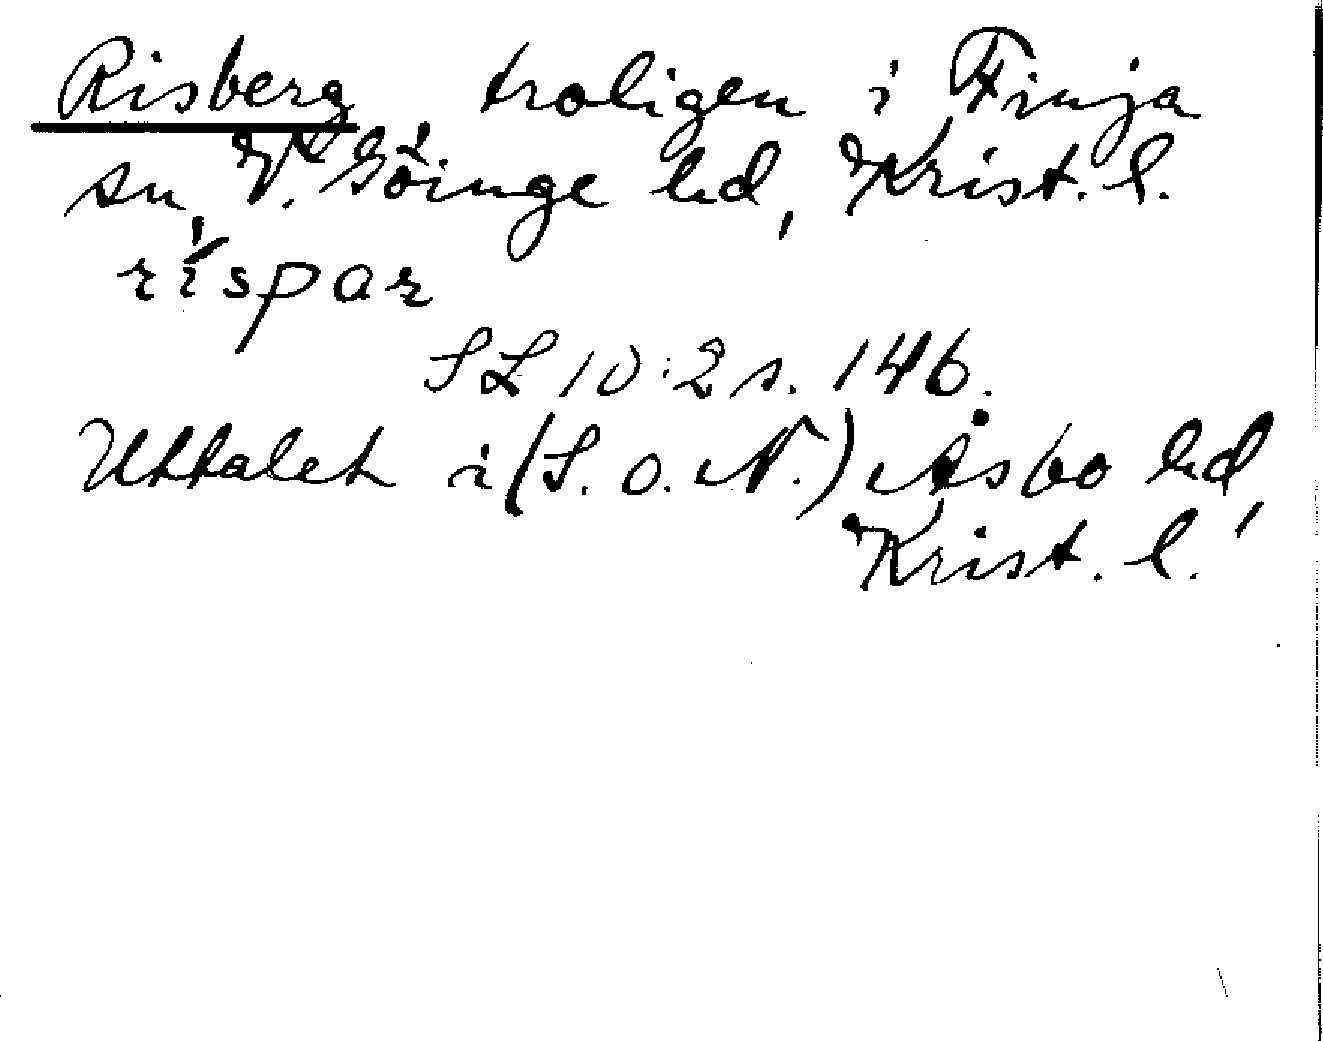 Risberg troligen i Finja
sn, V. Göinge hd, Krist. l.
ríspar
SL 10:2 s. 146.
Uttalet i (S. o. N.) Åsbo hd,
Krist. l.